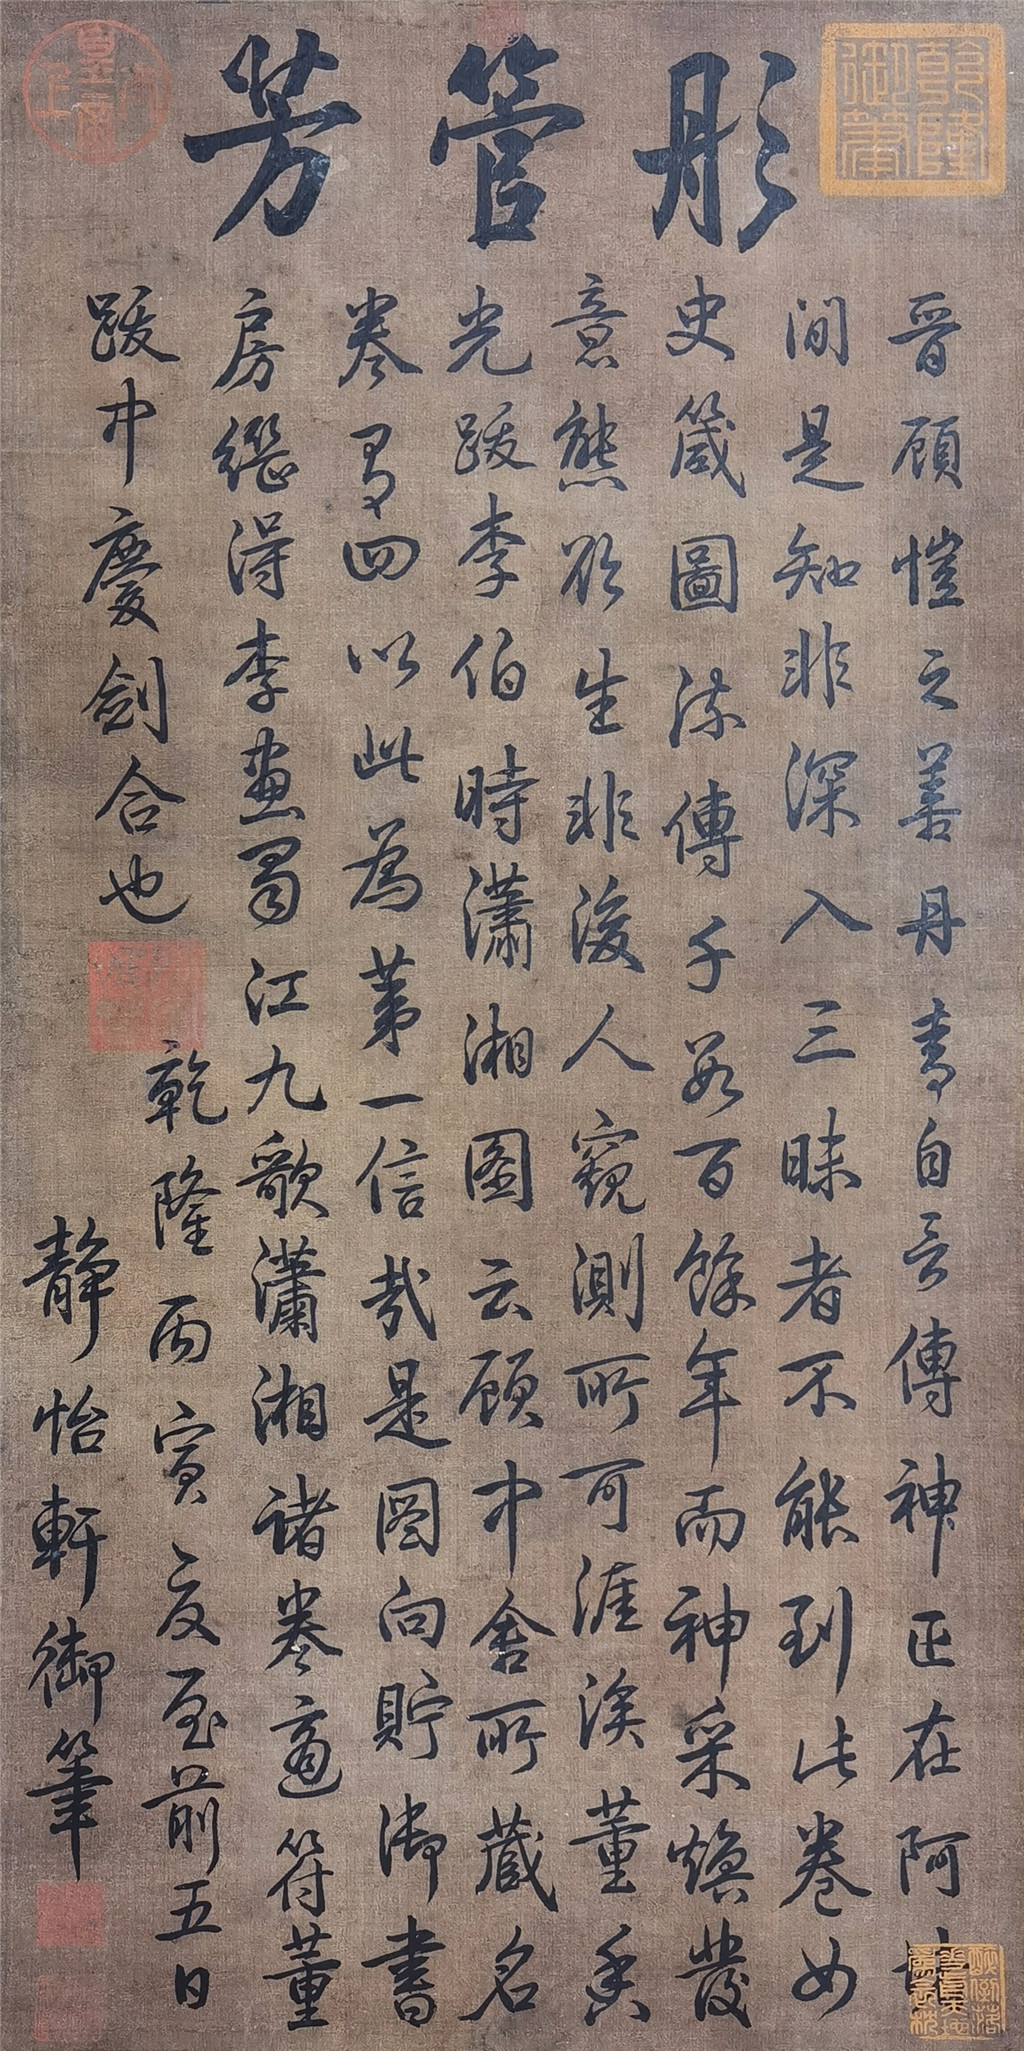 彤管芳
晉顧愷之善丹青自言傳神正在阿堵
間是知非深入三昧者不能到此卷女
史箴圖流傳千數百餘年而神采煥發
意態欲生非後人窺測所可涯涘董香
光跋李伯時瀟湘圖云顧中舍所藏名
卷有四以此為第一信哉是圖向貯御書
房繼得李畫蜀江九歌瀟湘諸卷適符董
跋中慶劍合也
乾隆丙寅夏至前五日
靜怡軒御筆
乾隆御筆